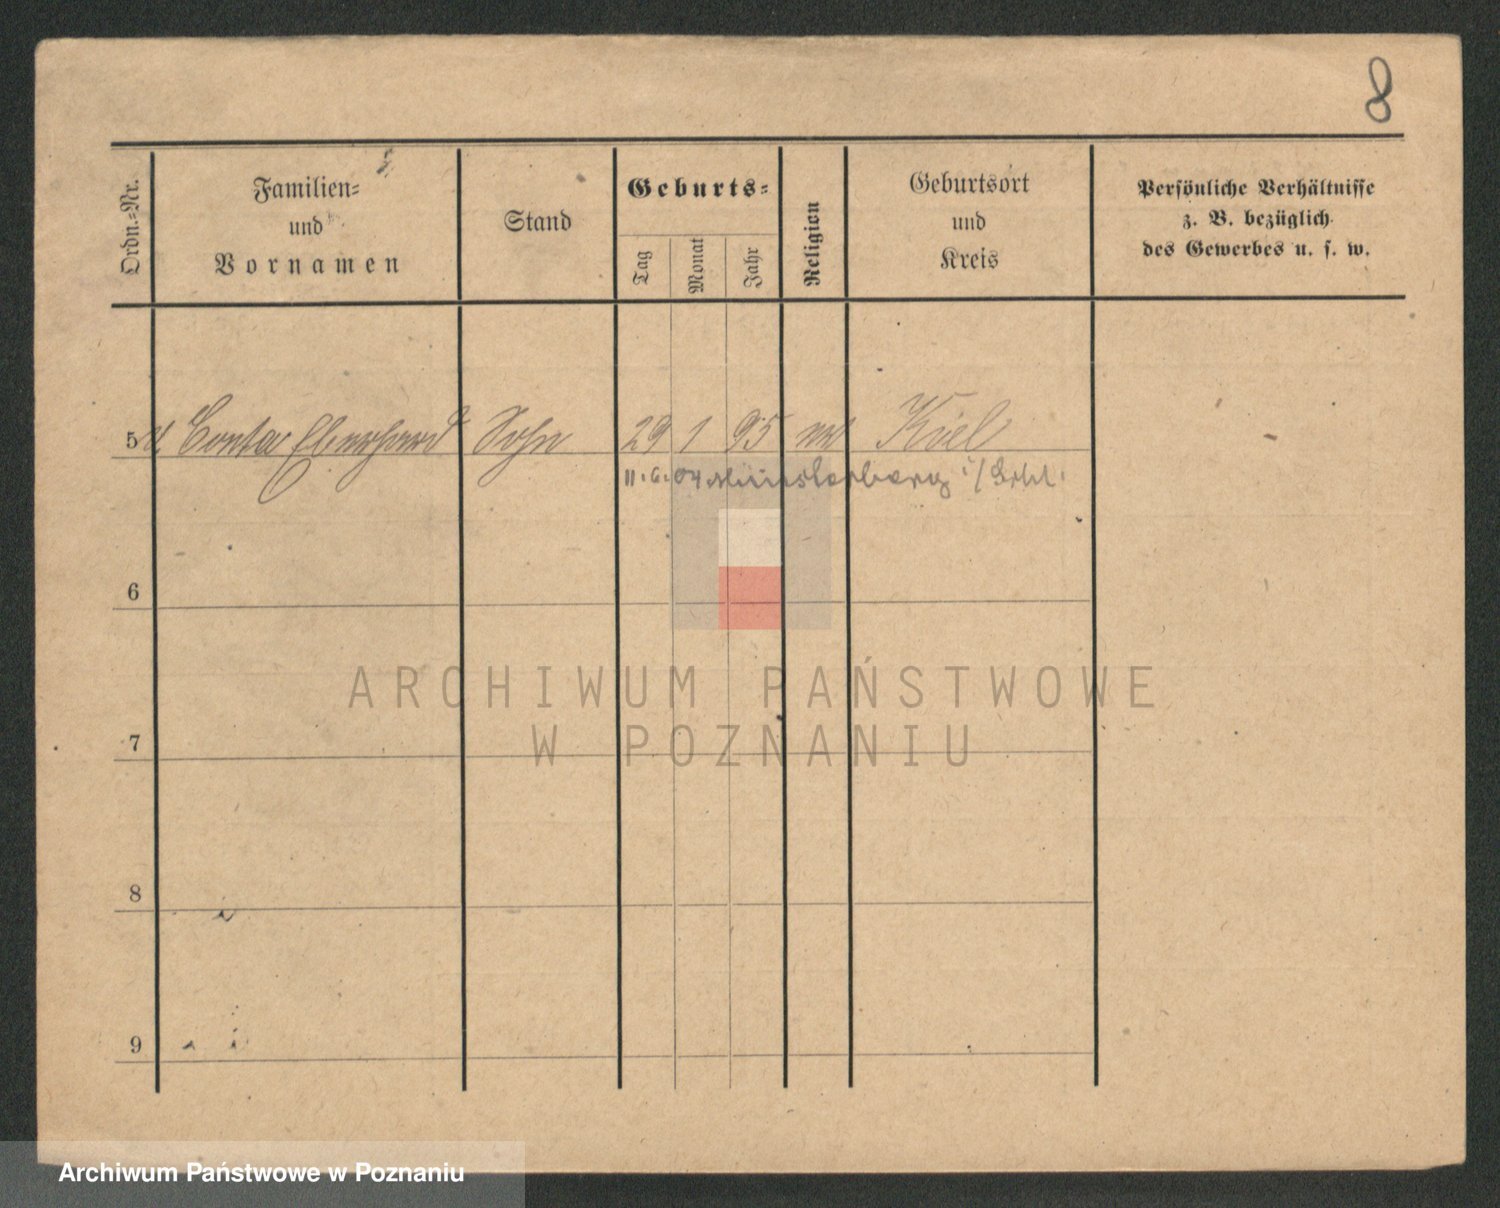 8
Ordn.-Nr.
Familien-
und
Vornamen
Stand
Geburts-
Tag
Monat
Jahr
Religion
Geburtsort
und
Kreis
Persönliche Verhältnisse
z. B. bezüglich
des Gewerbes u. s. w.
5 v. Conta Eberhard Sohn 29 1 95 Kiel
11.6.04 Münsterberg i/Schl.
6
ARCHIWUM PAŃSTWOWE
W POZNANIU
7
8
9
Archiwum Państwowe w Poznaniu